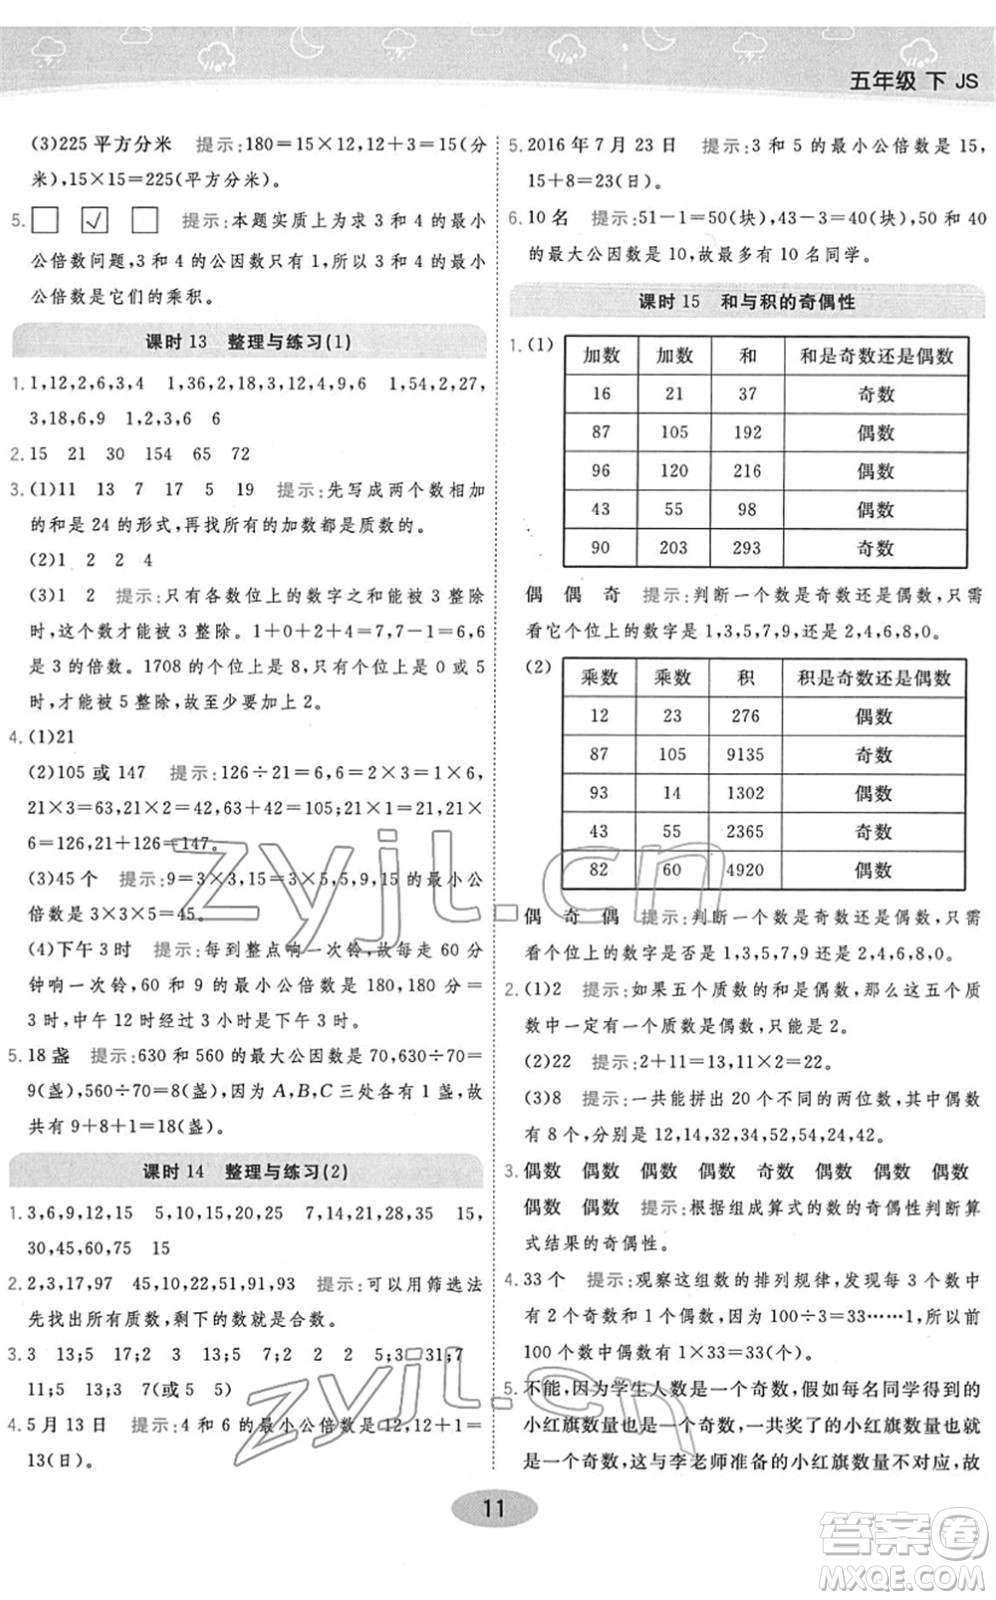 五年级 下 JS
(3)225 平方分米 提示:180=15×12,12+3=15(分
米),15×15=225(平方分米)。
5. □ ☑ □ 提示:本题实质上为求 3 和 4 的最小
公倍数问题,3 和 4 的公因数只有 1,所以 3 和 4 的最小
公倍数是它们的乘积。
课时 13 整理与练习(1)
1. 1,12,2,6,3,4 1,36,2,18,3,12,4,9,6 1,54,2,27,
3,18,6,9 1,2,3,6 6
2. 15 21 30 154 65 72
3. (1)11 13 7 17 5 19 提示:先写成两个数相加
的和是 24 的形式,再找所有的加数都是质数的。
(2)1 2 2 4
(3)1 2 提示:只有各数位上的数字之和能被 3 整除
时,这个数才能被 3 整除。1+0+2+4=7,7-1=6,6
是 3 的倍数。1708 的个位上是 8,只有个位上是 0 或 5
时,才能被 5 整除,故至少要加上 2。
4. (1)21
(2)105 或 147 提示:126÷21=6,6=2×3=1×6;
21×3=63,21×2=42,63+42=105;21×1=21,21×
6=126,21+126=147。
(3)45 个 提示:9=3×3,15=3×5,5,9,15 的最小公
倍数是 3×3×5=45。
(4)下午 3 时 提示:每到整点响一次铃,故每走 60 分
钟响一次铃,60 和 9 的最小公倍数是 180,180 分=
3 时,中午 12 时经过 3 小时是下午 3 时。
5. 18 盏 提示:630 和 560 的最大公因数是 70,630÷70=
9(盏),560÷70=8(盏),因为 A,B,C 三处各有 1 盏,故
共有 9+8+1=18(盏)。
课时 14 整理与练习(2)
1. 3,6,9,12,15 5,10,15,20,25 7,14,21,28,35 15,
30,45,60,75 15
2. 2,3,17,97 45,10,22,51,91,93 提示:可以用筛选法
先找出所有质数,剩下的数就是合数。
3. 3 13;5 17;2 2 3 13;7 2 2 5 3;31;7
11;5 13;3 7(或 5 5)
4. 5 月 13 日 提示:4 和 6 的最小公倍数是 12,12+1=
13(日)。
5. 2016 年 7 月 23 日 提示:3 和 5 的最小公倍数是 15,
15+8=23(日)。
6. 10 名 提示:51-1=50(块),43-3=40(块),50 和 40
的最大公因数是 10,故最多有 10 名同学。
课时 15 和与积的奇偶性
1. (1)
加数 加数 和 和是奇数还是偶数
16 21 37 奇数
87 105 192 偶数
96 120 216 偶数
43 55 98 偶数
90 203 293 奇数
偶 偶 奇 提示:判断一个数是奇数还是偶数,只需
看它个位上的数字是 1,3,5,7,9,还是 2,4,6,8,0。
(2)
乘数 乘数 积 积是奇数还是偶数
12 23 276 偶数
87 105 9135 奇数
93 14 1302 偶数
43 55 2365 奇数
82 60 4920 偶数
偶 奇 偶 提示:判断一个数是奇数还是偶数,只需
看个位上的数字是否是 1,3,5,7,9,还是 2,4,6,8,0。
2. (1)2 提示:如果五个质数的和是偶数,那么这五个质
数中一定有一个质数是偶数,只能是 2。
(2)22 提示:2+11=13,11×2=22。
(3)8 提示:一共能拼出 20 个不同的两位数,其中偶数
有 8 个,分别为 12,14,32,34,52,54,24,42。
3. 偶数 偶数 偶数 偶数 奇数 偶数 偶数 偶数
偶数 偶数 提示:根据组成算式的数的奇偶性判断算
式结果的奇偶性。
4. 33 个 提示:观察这组数的排列规律,发现每 3 个数中
有 2 个奇数和 1 个偶数,因为 100÷3=33……1,所以前
100 个数中偶数有 1×33=33(个)。
5. 不能,因为学生人数是一个奇数,假如每个同学得到的
小红旗数量也是一个奇数,一共奖了的小红旗数量也是
一个奇数,这与李老师准备的小红旗数量不对应,故
11
zyjl.cn
zyjl.cn
答案圈
MXQE.COM